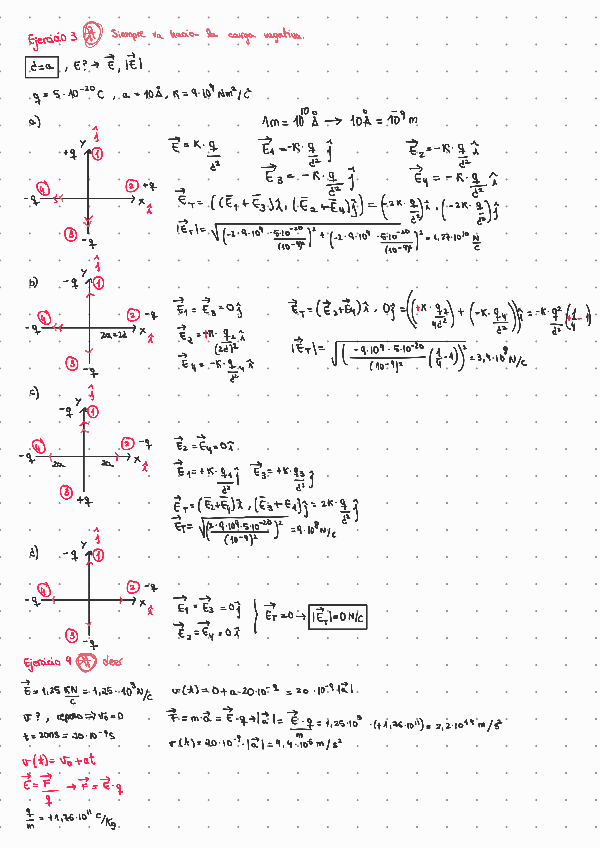 Ejercicio 3 Siempre va hacia la carga negativa.
d=a , E? → E⃗, |E⃗|
q = 5·10⁻²⁰ C , a = 10 Å, K = 9·10⁹ Nm²/C
1m = 10¹⁰ Å → 10 Å = 10⁻⁹ m
a)
y ĵ
+q 1
-q 4 2 +q
x î
3 -q
E⃗ = K·q/d² E⃗1 = -K·q/d² ĵ E⃗2 = -K·q/d² î
E⃗3 = -K·q/d² ĵ E⃗4 = -K·q/d² î
E⃗T = [(E⃗1 + E⃗3)î, (E⃗2 + E⃗4)ĵ] = (-2K·q/d²)î, (-2K·q/d²)ĵ
|E⃗T| = √((-2·9·10⁹·5·10⁻²⁰/(10⁻⁹)²)² + (-2·9·10⁹·5·10⁻²⁰/(10⁻⁹)²)²) = 1,27·10⁹ N/C
b)
y ĵ
-q 1
-q 4 2 -q
2a=2d x î
3 -q
E⃗1 = E⃗3 = 0ĵ
E⃗2 = +K·q2/(2d)² î
E⃗4 = -K·q4/d² î
E⃗T = (E⃗3+E⃗4)î , 0ĵ = ((+K·q2/4d²) + (-K·q4/d²))î = -K·q/d² (1/4 - 1)
|E⃗T| = √((-9·10⁹·5·10⁻²⁰/(10⁻⁹)² (1/4 - 1))²) = 3,4·10⁸ N/C
c)
y ĵ
-q 1
-q 4 2 -q
2a 2a x î
3 +q
E⃗2 = E⃗4 = 0î
E⃗1 = +K·q1/d² ĵ E⃗3 = +K·q3/d² ĵ
E⃗T = (E⃗2+E⃗4)î , (E⃗3+E⃗1)ĵ = 2K·q/d² ĵ
E⃗T = √((2·9·10⁹·5·10⁻²⁰/(10⁻⁹)²)²) = 9·10⁸ N/C
d)
y ĵ
-q 1
-q 4 2 -q
x î
3 -q
E⃗1 = E⃗3 = 0ĵ
E⃗2 = E⃗4 = 0î
E⃗T = 0 → |E⃗T| = 0 N/C
Ejercicio 9
E⃗ = 1,25 KN/C = 1,25·10³ N/C
v?, reposo ⇒ v₀ = 0
t = 20ns = 20·10⁻⁹ s
v(t) = v₀ + at
E⃗ = F⃗/q → F⃗ = E⃗·q
q/m = +1,76·10¹¹ C/Kg
v(t) = 0 + a·20·10⁻⁹ = 20·10⁻⁹ |a⃗|
F⃗ = m·a⃗ = E⃗·q → |a⃗| = E⃗·q/m = 1,25·10³ · (+1,76·10¹¹) = 2,2·10¹⁴ m/s²
v(t) = 20·10⁻⁹·|a⃗| = 4,4·10⁶ m/s²